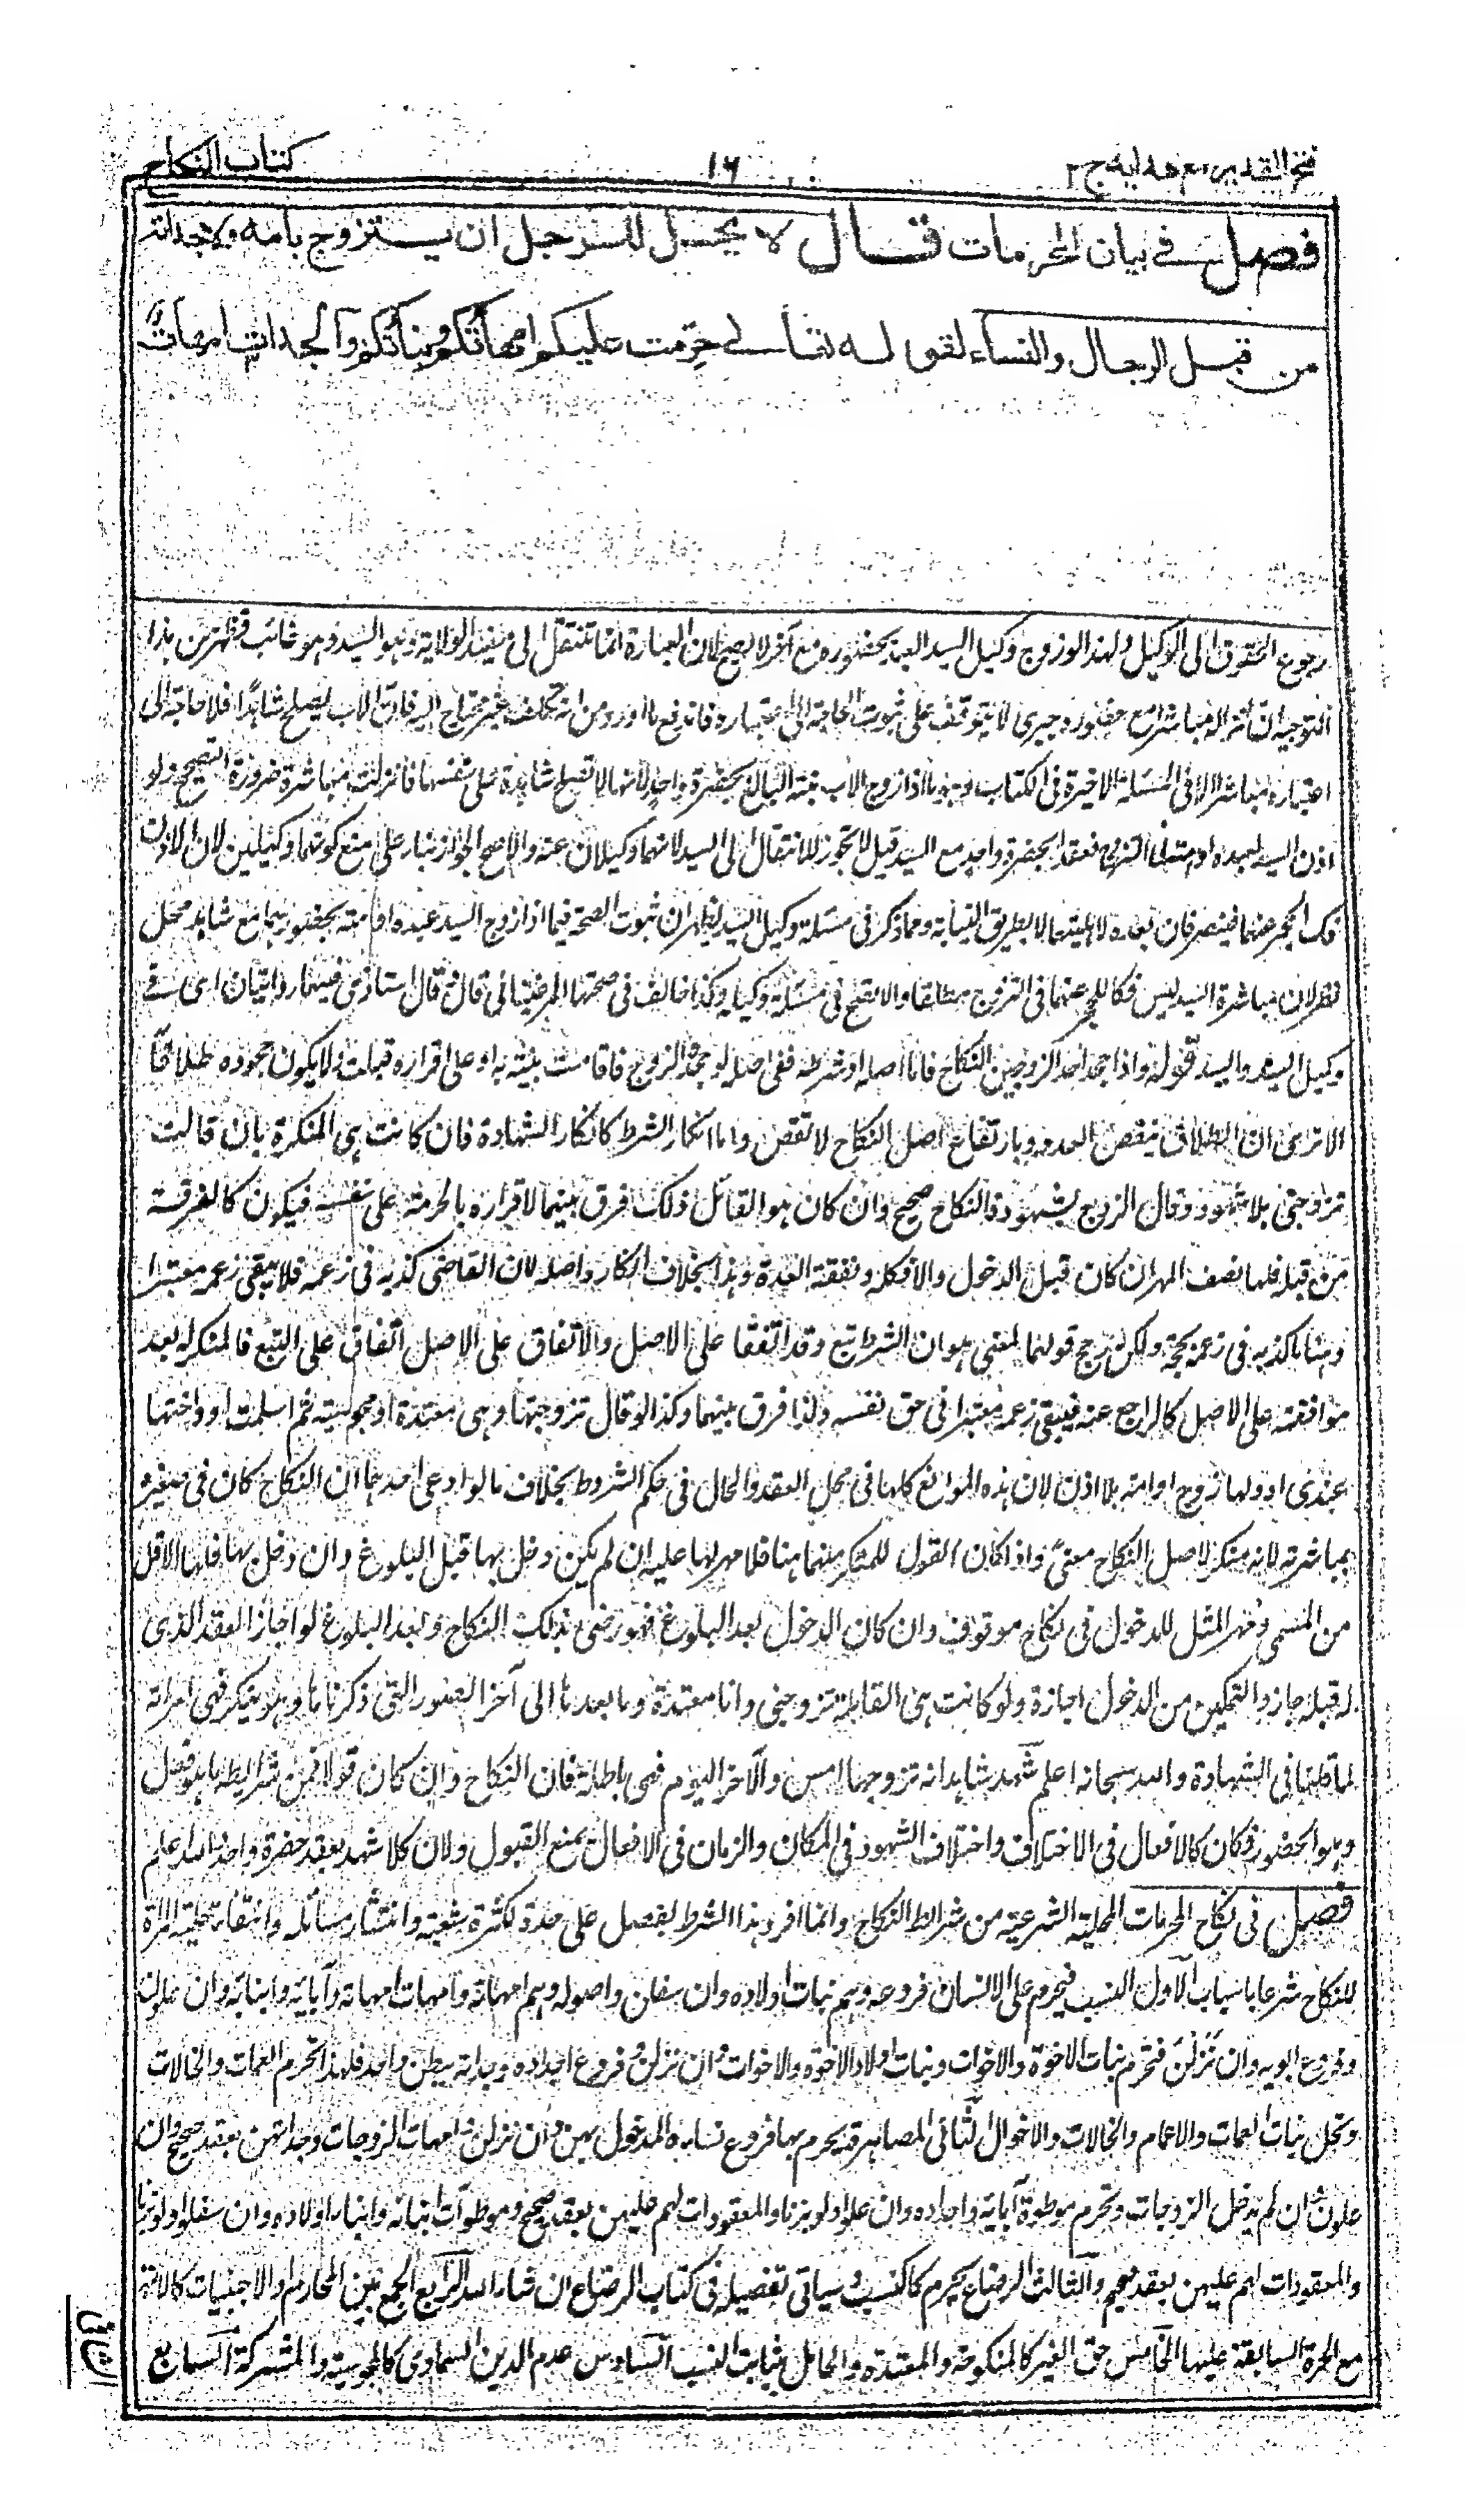 فتح القدير مع هدايه ج٣
١٦
كتاب النكاح
فصل في بيان المحرمات قال لا يحل للرجل ان يتزوج بامه ولا بجداته
من قبل الرجال والنساء لقوله تعالى حرمت عليكم امهاتكم وبناتكم والجدات امهات
رجوع الحقوق الى الوكيل ولهذا لو زوج وكيل السيد العبد بحضوره مع آخر لا يصح لان العبارة انما تنتقل الى مفيد الولاية وهو السيد وهو غائب وظهر من هذا
التوجيه ان انزاله مباشرا مع حضوره جبرى لا يتوقف على ثبوت الحاجة الى اعتباره فاندفع ما اورد من انه تكلف غير محتاج اليه فان الاب يصلح شاهدا فلا حاجة الى
اعتباره مباشرا الا فى المسئلة الاخيرة فى الكتاب وهو ما اذا زوج الاب بنته البالغ بحضرة واحد لانها لا تصلح شاهدة على نفسها فانزلت مباشرة ضرورة التصحيح ولو
اذن السيد لعبده او امته فى التزوج فعقد بحضرة واحد مع السيد قيل لا يجوز للانتقال الى السيد لانهما وكيلان عنه والاصح الجواز بناء على منع كونهما وكيلين لان الاذن
فك الحجر عنهما فيتصرفان بعده لاهليتهما لا بطريق النيابة ومما ذكر فى مسئلة وكيل السيد يظهر ان ثبوت الصحة فيما اذا زوج السيد عبده او امته بحضورهما مع شاهد محل
نظر لان مباشرة السيد ليس فكا للحجر عنهما فى التزوج مطلقا والا لصح فى مسئلة وكيله وكذا خالف فى صحتها المرغينانى قال قال استاذى فيهما روايتان اى فى
وكيل السيد والسيد قوله واذا جحد احد الزوجين النكاح فاما اصله او شرطه ففى اصله لو جحد الزوج فاقامت بينة به او على اقراره قبلت ولا يكون جحوده طلاقا
الا ترى ان الطلاق ينقص العدد وبارتفاع اصل النكاح لا نقص واما انكار الشرط كانكار الشهادة فان كانت هى المنكرة بان قالت
تزوجنى بلا شهود وقال الزوج بشهود فالنكاح صحيح وان كان هو القائل ذلك فرق بينهما لاقراره بالحرمة على نفسه فيكون كالفرقة
من قبله فلها نصف المهر ان كان قبل الدخول والا فكله ونفقة العدة وهذا بخلاف انكاره اصله لان القاضى كذبه فى زعمه فلا يبقى زعمه معتبرا
وهنا ما كذبه فى زعمه بحجة ولكن رجح قولها لمعنى هو ان الشرط تبع وقد اتفقا على الاصل والاتفاق على الاصل اتفاق على التبع فالمنكر له بعد
موافقته على الاصل كالراجع عنه فيبقى زعمه معتبرا فى حق نفسه ولذا فرق بينهما وكذا لو قال تزوجتها وهى معتدة او مجوسية ثم اسلمت او واختها
عندى او ولها زوج او امة بلا اذن لان هذه الموانع كلها فى محل العقد والحال فى حكم الشروط بخلاف ما لو ادعى احدهما ان النكاح كان فى صغره
بمباشرته لانه منكر لاصل النكاح معنى واذا كان القول للمنكر منهما هنا فلا مهر لها عليه ان لم يكن دخل بها قبل البلوغ وان دخل بها فلها الاقل
من المسمى ومهر المثل للدخول فى نكاح موقوف وان كان الدخول بعد البلوغ فهو رضى بذلك النكاح وبعد البلوغ لو اجاز العقد الذى
له قبله جاز والتمكين من الدخول اجازة ولو كانت هى القائلة تزوجنى وانا معتدة وما بعدها الى آخر الصور التى ذكرناها وهو ينكر فهى امرأته
لما قلنا فى الشهادة والله سبحانه اعلم شهد شاهد انه تزوجها امس والآخر اليوم فهى باطلة فان النكاح وان كان قولا فمن شرائطه ما هو فعل
وهو الحضور فكان كالافعال فى الاختلاف واختلاف الشهود فى المكان والزمان فى الافعال يمنع القبول ولان كلا شهد بعقد حضره واحد الله اعلم
فصل فى نكاح المحرمات المحلية الشرعية من شرائط النكاح وانما افرد هذا الشرط بفصل على حدة لكثرة شعبه وانتشار مسائله وانتفاء محلية المرأة
للنكاح شرعا باسباب الاول النسب فيحرم على الانسان فروعه وهم بنات اولاده وان سفلن واصوله وهم امهاته وامهات امهاته وآبائه وابنائه وان علون
وفروع ابويه وان نزلن فتحرم بنات الاخوة والاخوات وبنات اولاد الاخوة والاخوات وان نزلن وفروع اجداده وجداته ببطن واحد فلهذا تحرم العمات والخالات
وتحل بنات العمات والاعمام والخالات والاخوال الثانى المصاهرة يحرم بها فروع نسائه المدخول بهن وان نزلن وامهات الزوجات وجداتهن بعقد صحيح وان
علون وان لم يدخل الزوجات وتحرم موطوءة آبائه واجداده وان علوا ولو بزنا والمعقودات لهم عليهن بعقد صحيح وموطوآت ابنائه وابناء اولاده وان سفلوا ولو بزنا
والمعقودات لهم عليهن بعقد صحيح والثالث الرضاع يحرم كالنسب وسياتى تفصيله فى كتاب الرضاع ان شاء الله الرابع الجمع بين المحارم والاجنبيات كالامة
مع الحرة السابقة عليها الخامس حق الغير كالمنكوحة والمعتدة والحامل بثابت النسب السادس عدم الدين السماوى كالمجوسية والمشركة السابع